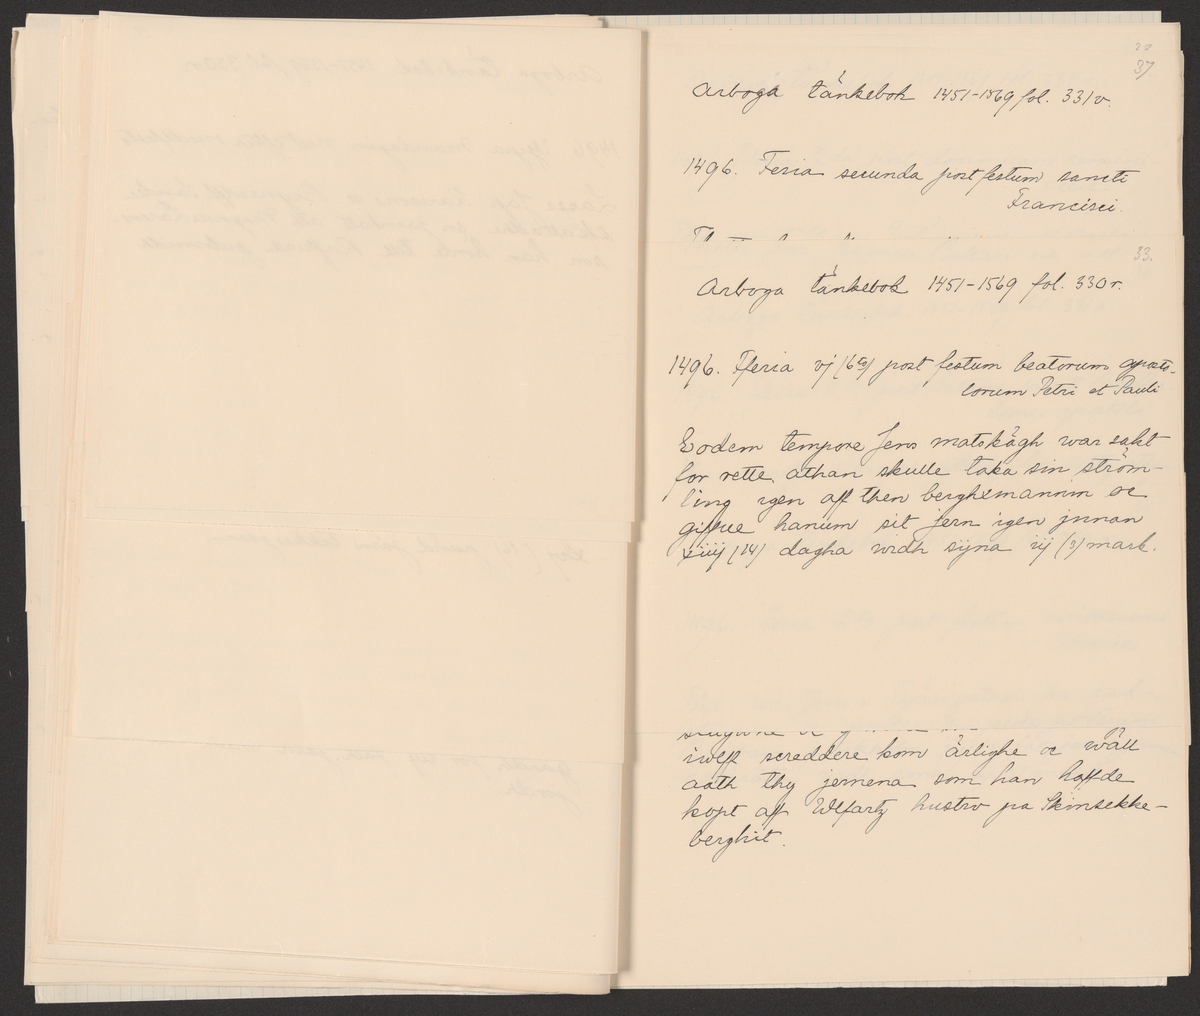 37
Arboga tänkebok 1451-1569 fol. 331v.
1496. Feria secunda post festum sancti
Francisci.
33.
Arboga tänkebok 1451-1569 fol. 330r.
1496. Fferia vj (6te) post festum beatorum aposto-
lorum Petri et Pauli
Eodem tempore Jens matskögh war saht
for rette athan skulle taka sin ström-
ling igen aff then berghsmannin oc
giffue hanum sit jern igen jnnan
xiiij (14) dagha widh sijna iij (3) mark.
iwlff screddere kom ärlighe oc wäll
aath thy jernena som han haffde
köpt aff Wlfartz hustro pa Skinsekke-
berghit.